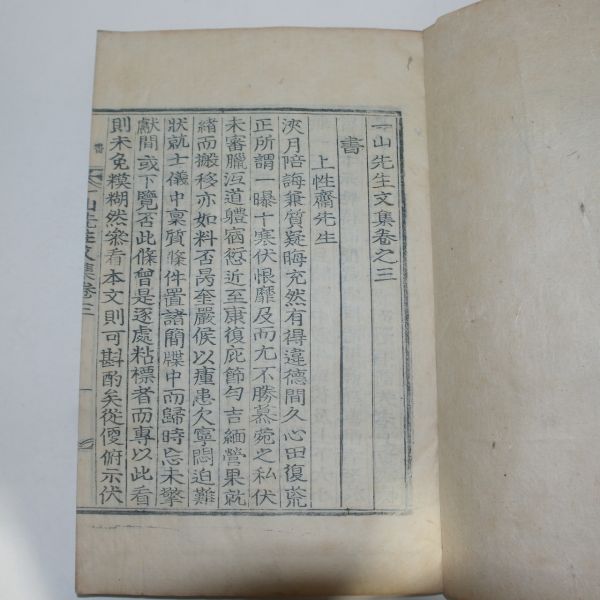 一山先生文集卷之三
書
上性齋先生
浹月陪誨兼質疑晦充然有得違德間久心田復荒
正所謂一曝十寒伏恨靡及而尤不勝慕菀之私伏
未審臘沍道體宿愆近至康復庇節勻吉緬營果就
緖而搬移亦如料否昺奎嚴候以瘇患欠寧悶迫難
狀就士儀中稟質條件置諸簡牒中而歸時忘未擎
獻間或下覽否此條曾是逐處粘標者而專以此看
則未免糢糊然參看本文則可斟酌矣從便俯示伏
書
一山先生文集卷三